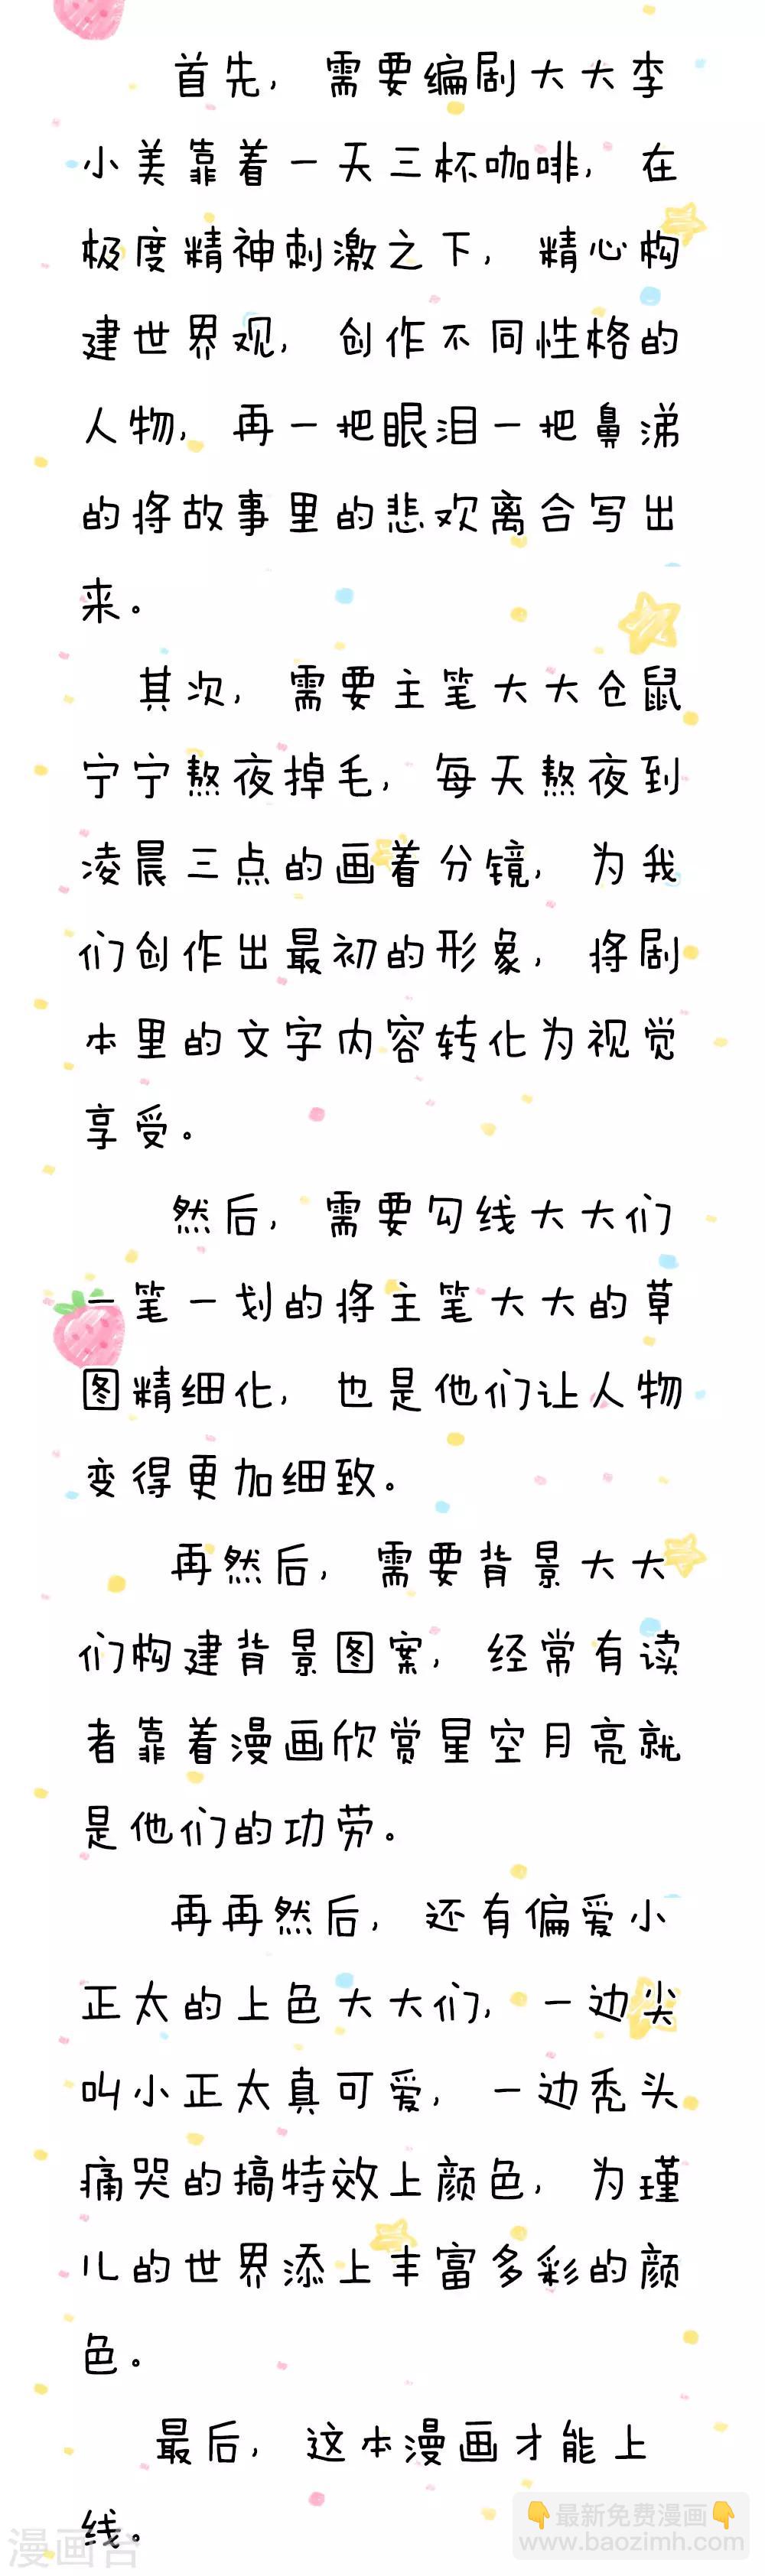 首先，需要编剧大大李
小美靠着一天三杯咖啡，在
极度精神刺激之下，精心构
建世界观，创作不同性格的
人物，再一把眼泪一把鼻涕
的将故事里的悲欢离合写出
来。
其次，需要主笔大大仓鼠
宁宁熬夜掉毛，每天熬夜到
凌晨三点的画着分镜，为我
们创作出最初的形象，将剧
本里的文字内容转化为视觉
享受。
然后，需要勾线大大们
一笔一划的将主笔大大的草
图精细化，也是他们让人物
变得更加细致。
再然后，需要背景大大
们构建背景图案，经常有读
者靠着漫画欣赏星空月亮就
是他们的功劳。
再再然后，还有偏爱小
正太的上色大大们，一边尖
叫小正太真可爱，一边秃头
痛哭的搞特效上颜色，为瑾
儿的世界添上丰富多彩的颜
色。
最后，这本漫画才能上
线。
漫画台
👇最新免费漫画👇
www.baozimh.com